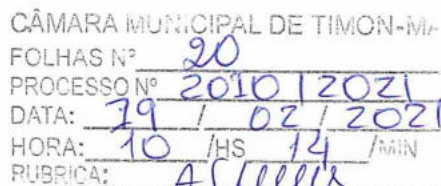 CÂMARA MUNICIPAL DE TIMON-MA
FOLHAS Nº 20
PROCESSO Nº 2010 / 2021
DATA: 19 / 02 / 2021
HORA: 10 /HS 14 /MIN
RUBRICA: